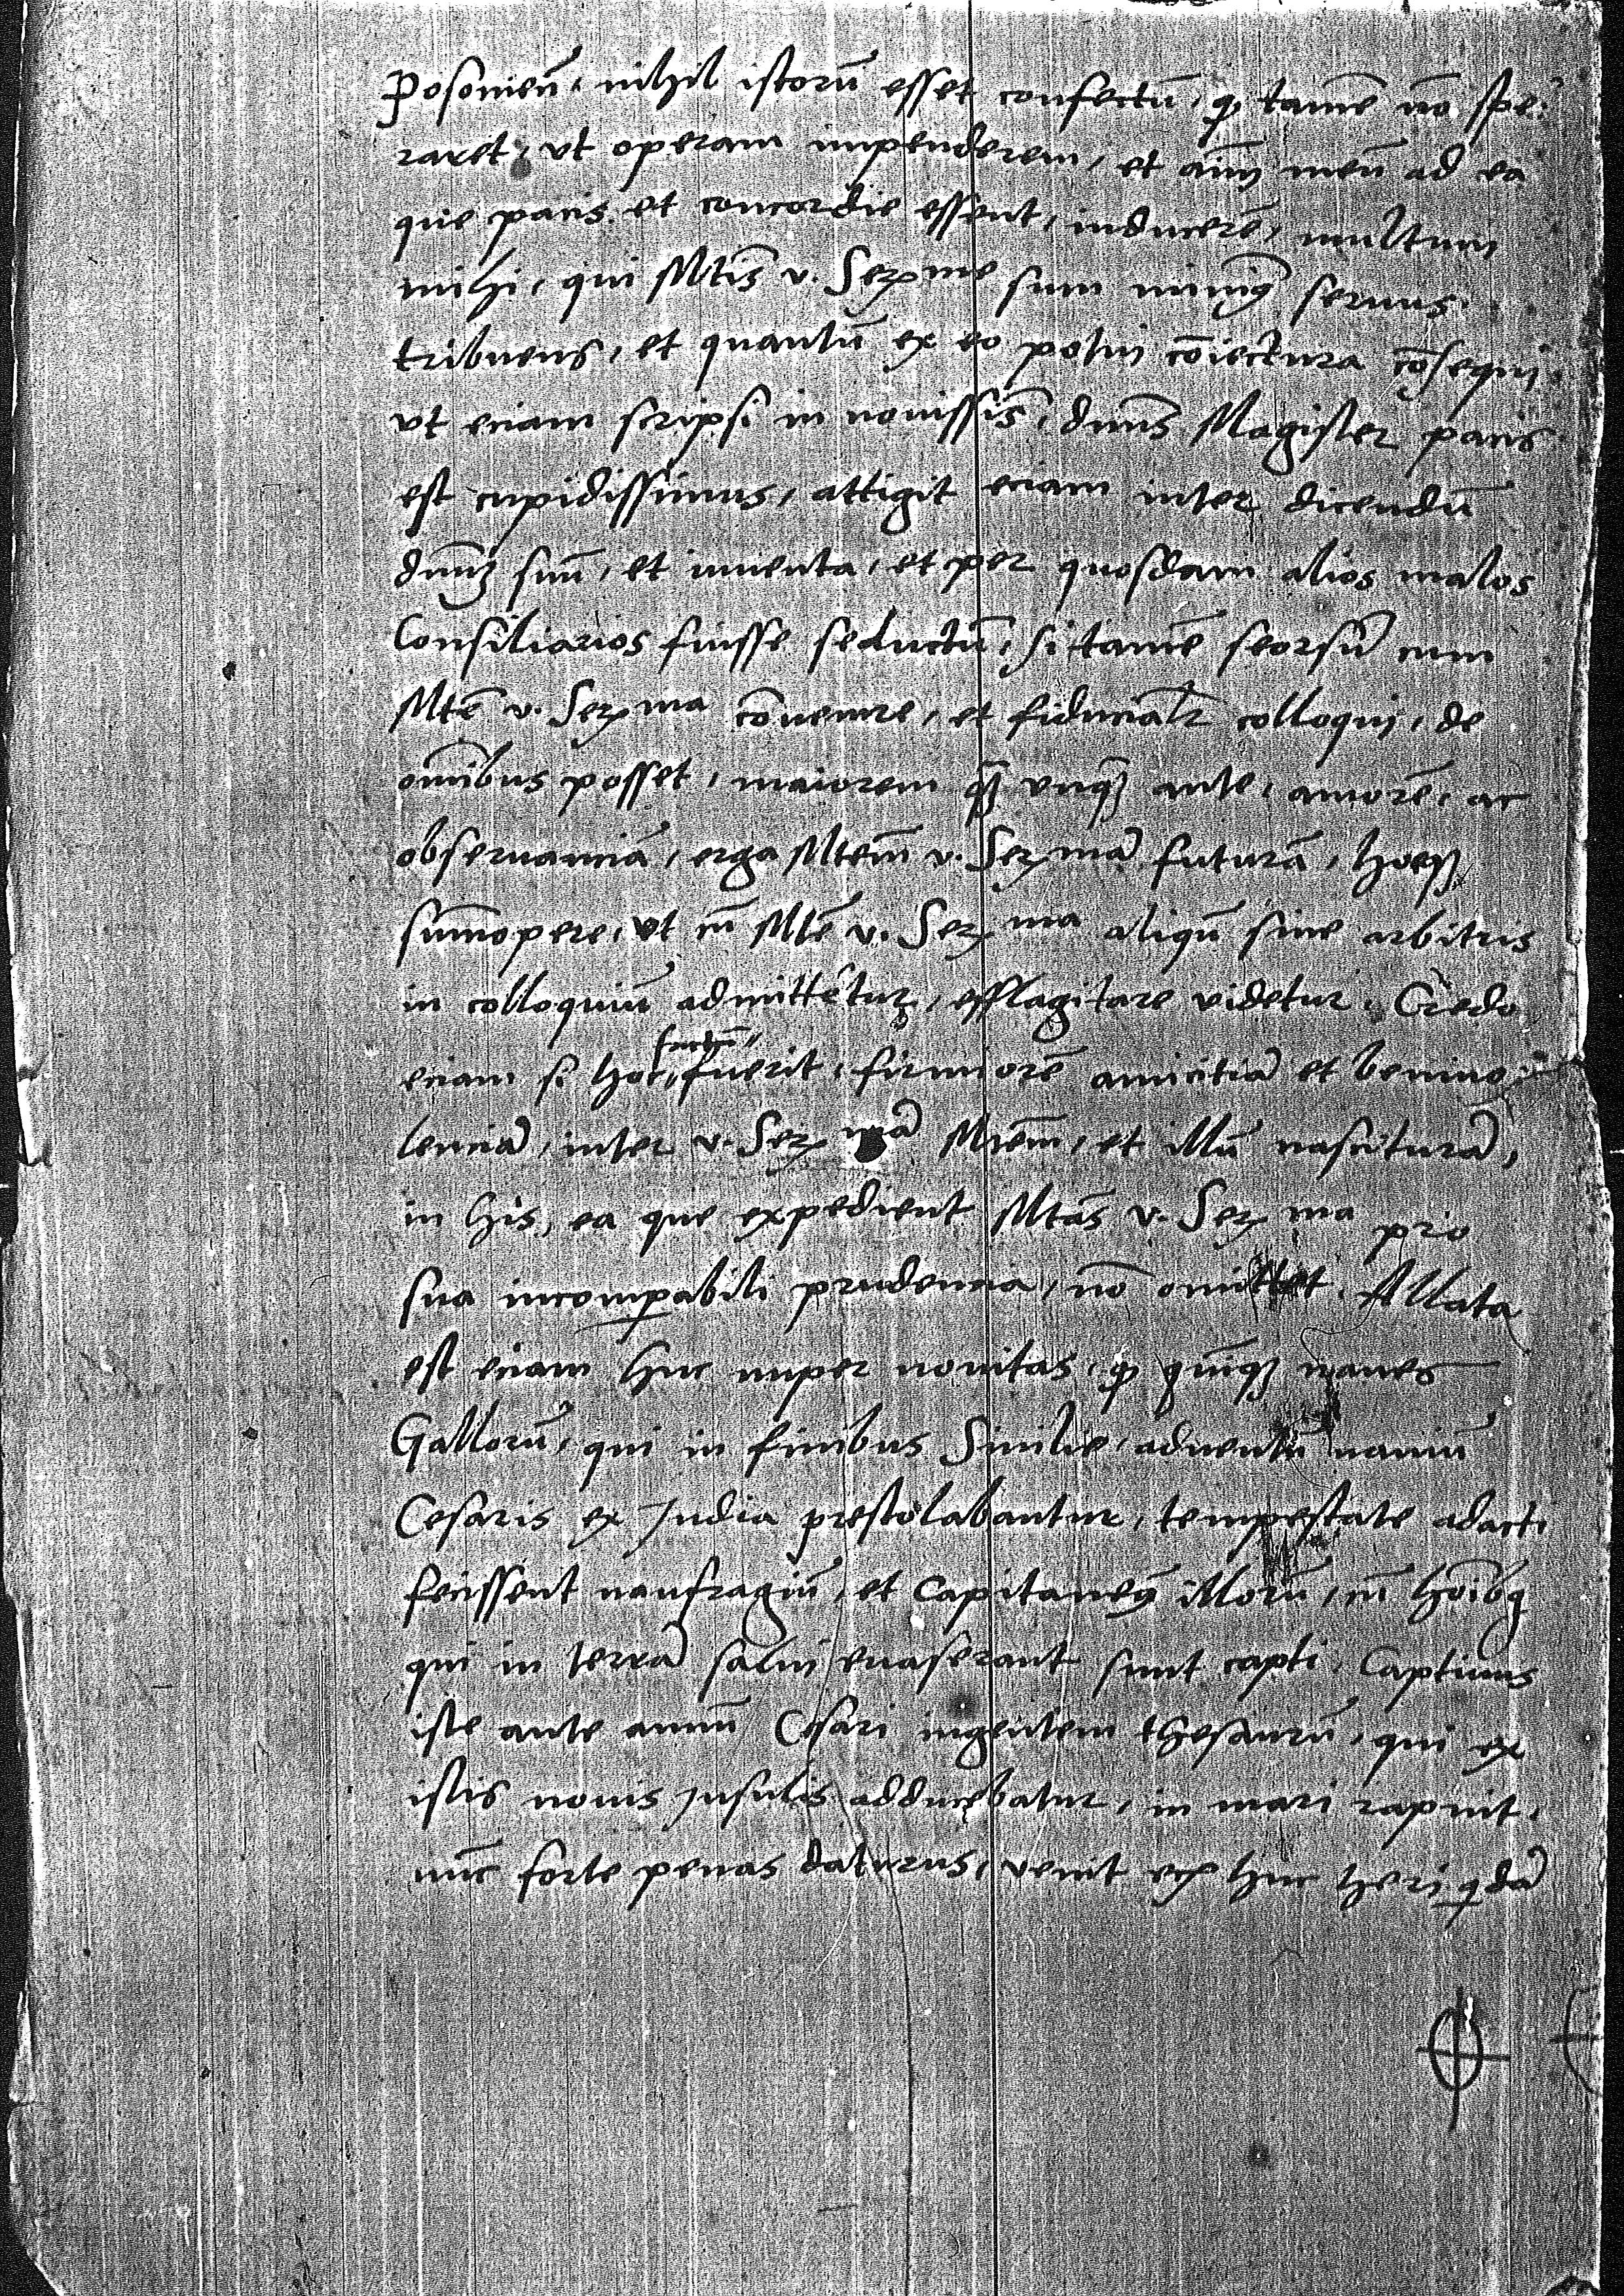 Posonien̄, nihil istorū esset confectū, qꝫ tamē nō spe:
raret, vt operam impenderem, et aīm̄ meū ad ea
que pacis et concordie essent, inducerē, multum
mihi, qui Mtīs v. Serme sum minimꝫ seruus
tribuens, et quantū ex eo potui cōiectura cōsequi
vt eciam scripsi in nouissīs, dnūs Magister pacis
est cupidissimus, attigit eciam inter dicendū
dnūm suū, et iuuenta, et per quosdam alios malos
Consiliarios fuisse seductū, si tamē seorsū cum
Mtē v. Serma cōuenire, et fiducialr colloqui, de
omībus posset, maiorem qꝫ vnqꝫ ante, amorē, ac
obseruanciā, erga Mtem̄ v. Sermā futurā, hocqꝫ
summopere, vt cū Mtē v. Serma aliqn̄ sine arbitris
in colloquiū admittētur, efflagitare videtur. Credo
eciam si hoc factū fuerit, firmiorē amicitiā et beniuo
lenciā, inter v. Sermā Mtem̄, et illū nasciturā,
in his, ea que expedient Mtas v. Serma pro
sua incompabili prudencia, nō omittet. Allata
est eciam huc nuper nouitas, qꝫ quinqꝫ naues
Gallorū, qui in finibus Sicilie, aduentū nauiū
Cesaris ex India prestolabantur, tempestate adacti
fecissent naufragiū, et Capitaneꝫ illorū, cū hōibꝫ
qui in terrā salui euaserant sunt capti, Captiuus
iste ante annū Cesari ingentem thesaurū, qui ex
istis nouis Insulis adducebatur, in mari rapuit,
nūc forte penas daturus, venit ecꝫ huc heri qdā